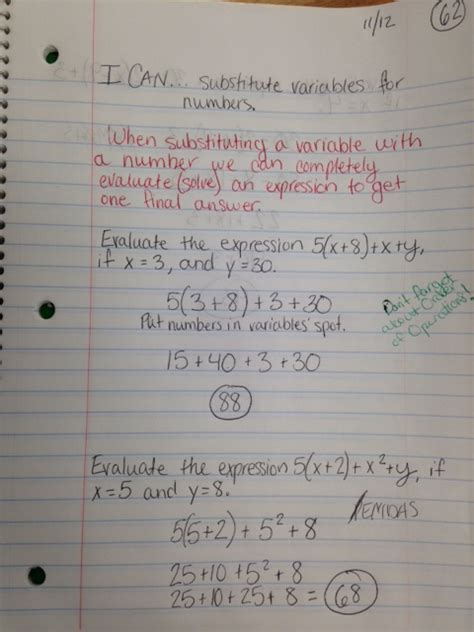 11/12
62
I CAN... substitute variables for
numbers.
When substituting a variable with
a number we can completely
evaluate (solve) an expression to get
one final answer.
Evaluate the expression 5(x+8)+x+y,
if x=3, and y=30.
5(3+8)+3+30
Put numbers in variables' spot.
Don't forget
about Order
of Operations!
15+40+3+30
88
Evaluate the expression 5(x+2)+x²+y, if
x=5 and y=8.
PEMDAS
5(5+2)+5²+8
25+10+5²+8
25+10+25+8=68